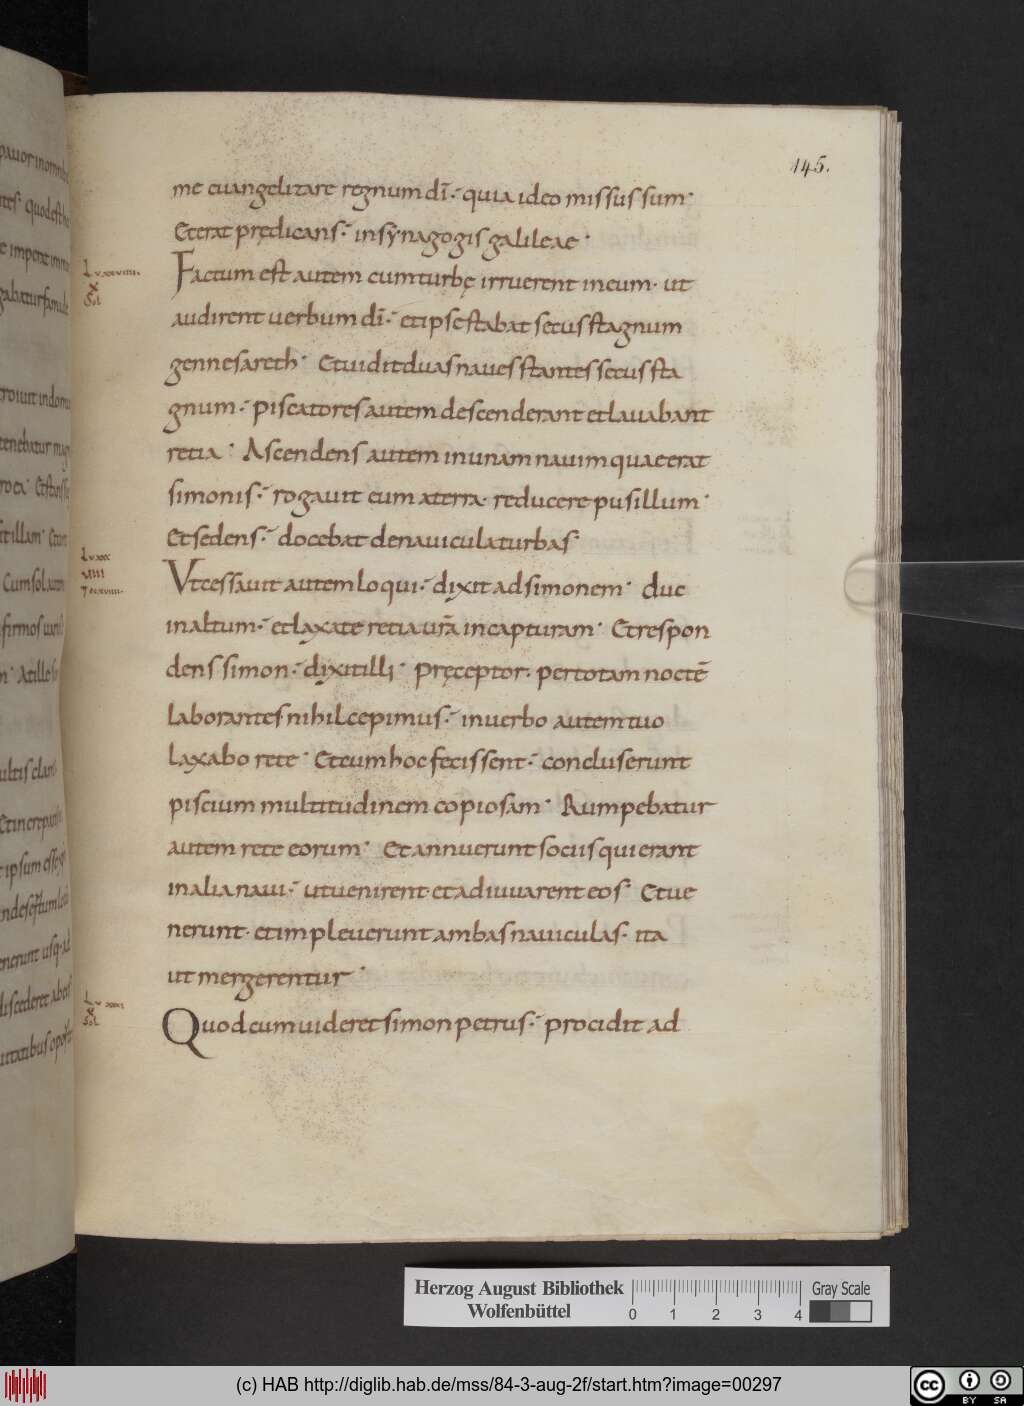 145.
me euangelizare regnum dī. quia ideo missus sum.
Et erat prędicans. in synagogis galileae.
Factum est autem cum turbę irruerent in eum. ut
audirent uerbum dī. et ipse stabat secus stagnum
gennesareth. Et uidit duas naues stantes secus sta
gnum. piscatores autem descenderant et lauabant
retia. Ascendens autem in unam nauim quae erat
simonis. rogauit eum a terra. reducere pusillum.
Et sedens. docebat de nauicula turbas.
Vt cessauit autem loqui. dixit ad simonem. duc
in altum. et laxate retia urā in capturam. Et respon
dens simon. dixit illi. pręceptor. per totam noctē
laborantes nihil cepimus. in uerbo autem tuo
laxabo rete. Et cum hoc fecissent. concluserunt
piscium multitudinem copiosam. Rumpebatur
autem rete eorum. Et annuerunt sociis qui erant
in alia naui. ut uenirent et adiuuarent eos. Et ue
nerunt. et impleuerunt ambas nauiculas. ita
ut mergerentur.
Quod cum uideret simon petrus. procidit ad
Herzog August Bibliothek
Wolfenbüttel
0 1 2 3 4
Gray Scale
(c) HAB http://diglib.hab.de/mss/84-3-aug-2f/start.htm?image=00297
cc BY SA